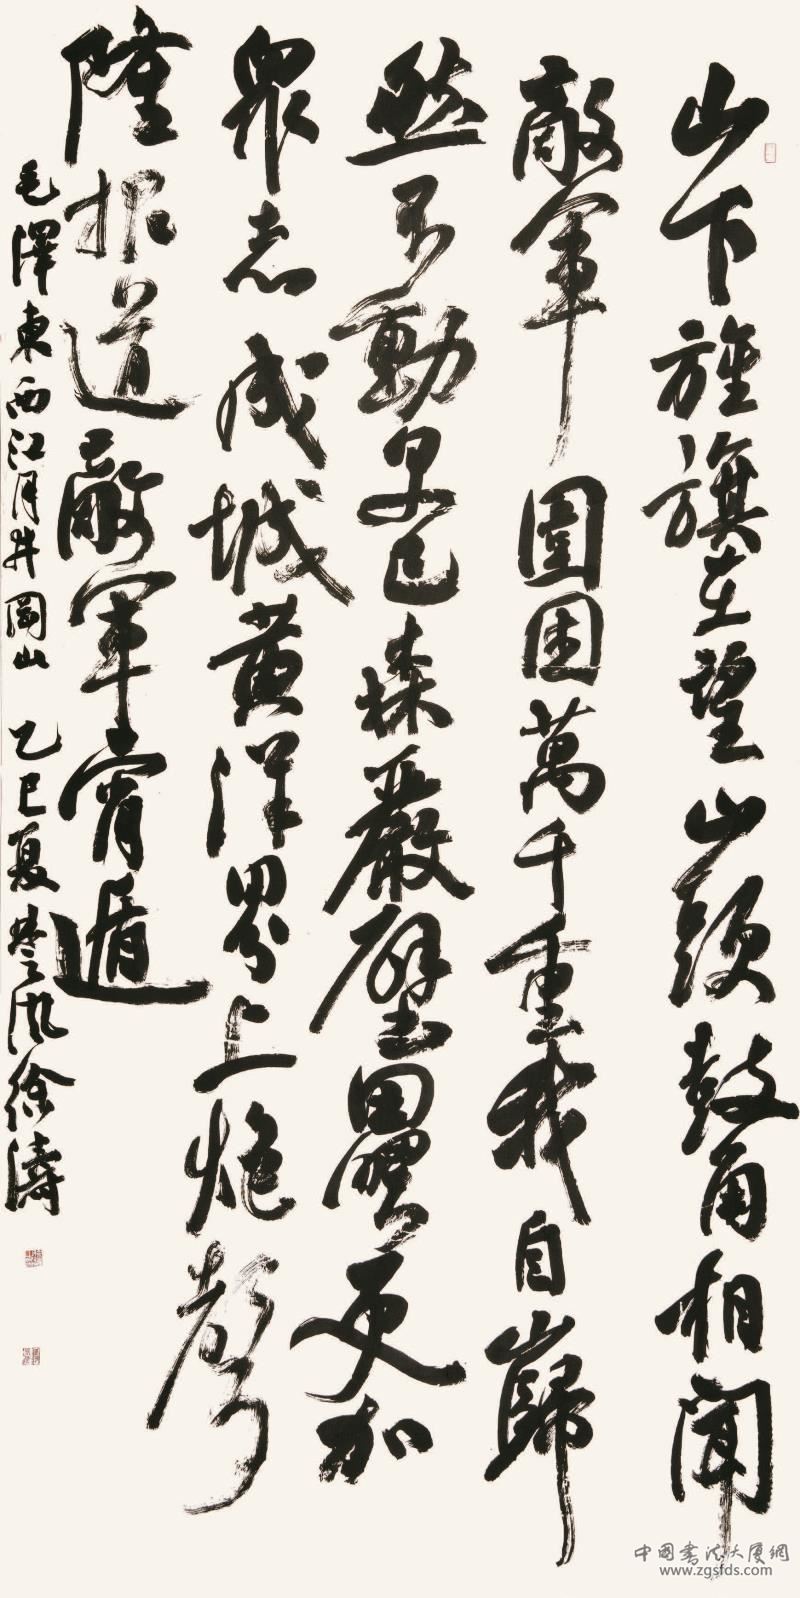 山下旌旗在望山頭鼓角相聞
敵軍圍困萬千重我自巋
然不動早已森嚴壁壘更加
衆志成城黃洋界上炮聲
隆報道敵軍宵遁
毛澤東西江月井岡山 乙巳夏 徐濤
中國書法大厦網
www.zgsfds.com